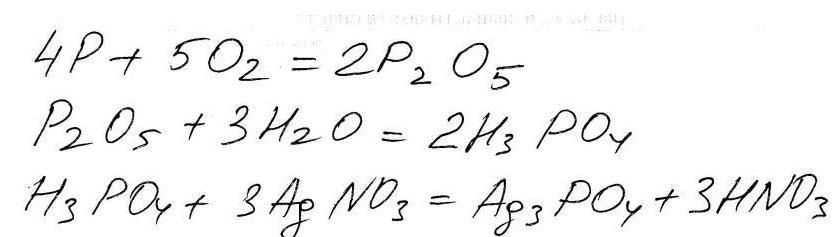 4P + 5O₂ = 2P₂O₅
P₂O₅ + 3H₂O = 2H₃PO₄
H₃PO₄ + 3AgNO₃ = Ag₃PO₄ + 3HNO₃